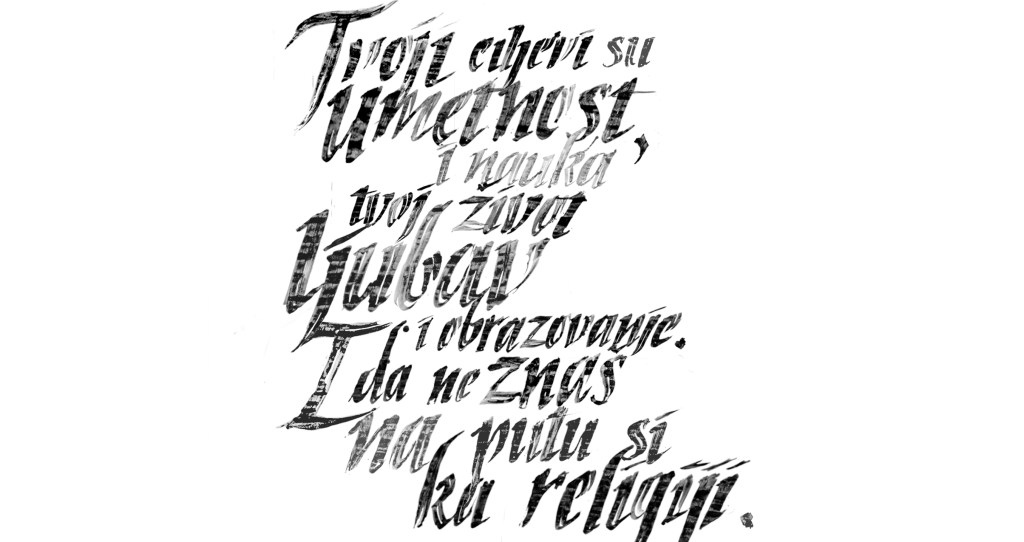 Tvoji ciljevi su
umetnost,
i nauka
tvoj život
Ljubav
i obrazovanje.
I da ne znaš
na putu si
ka religiji.